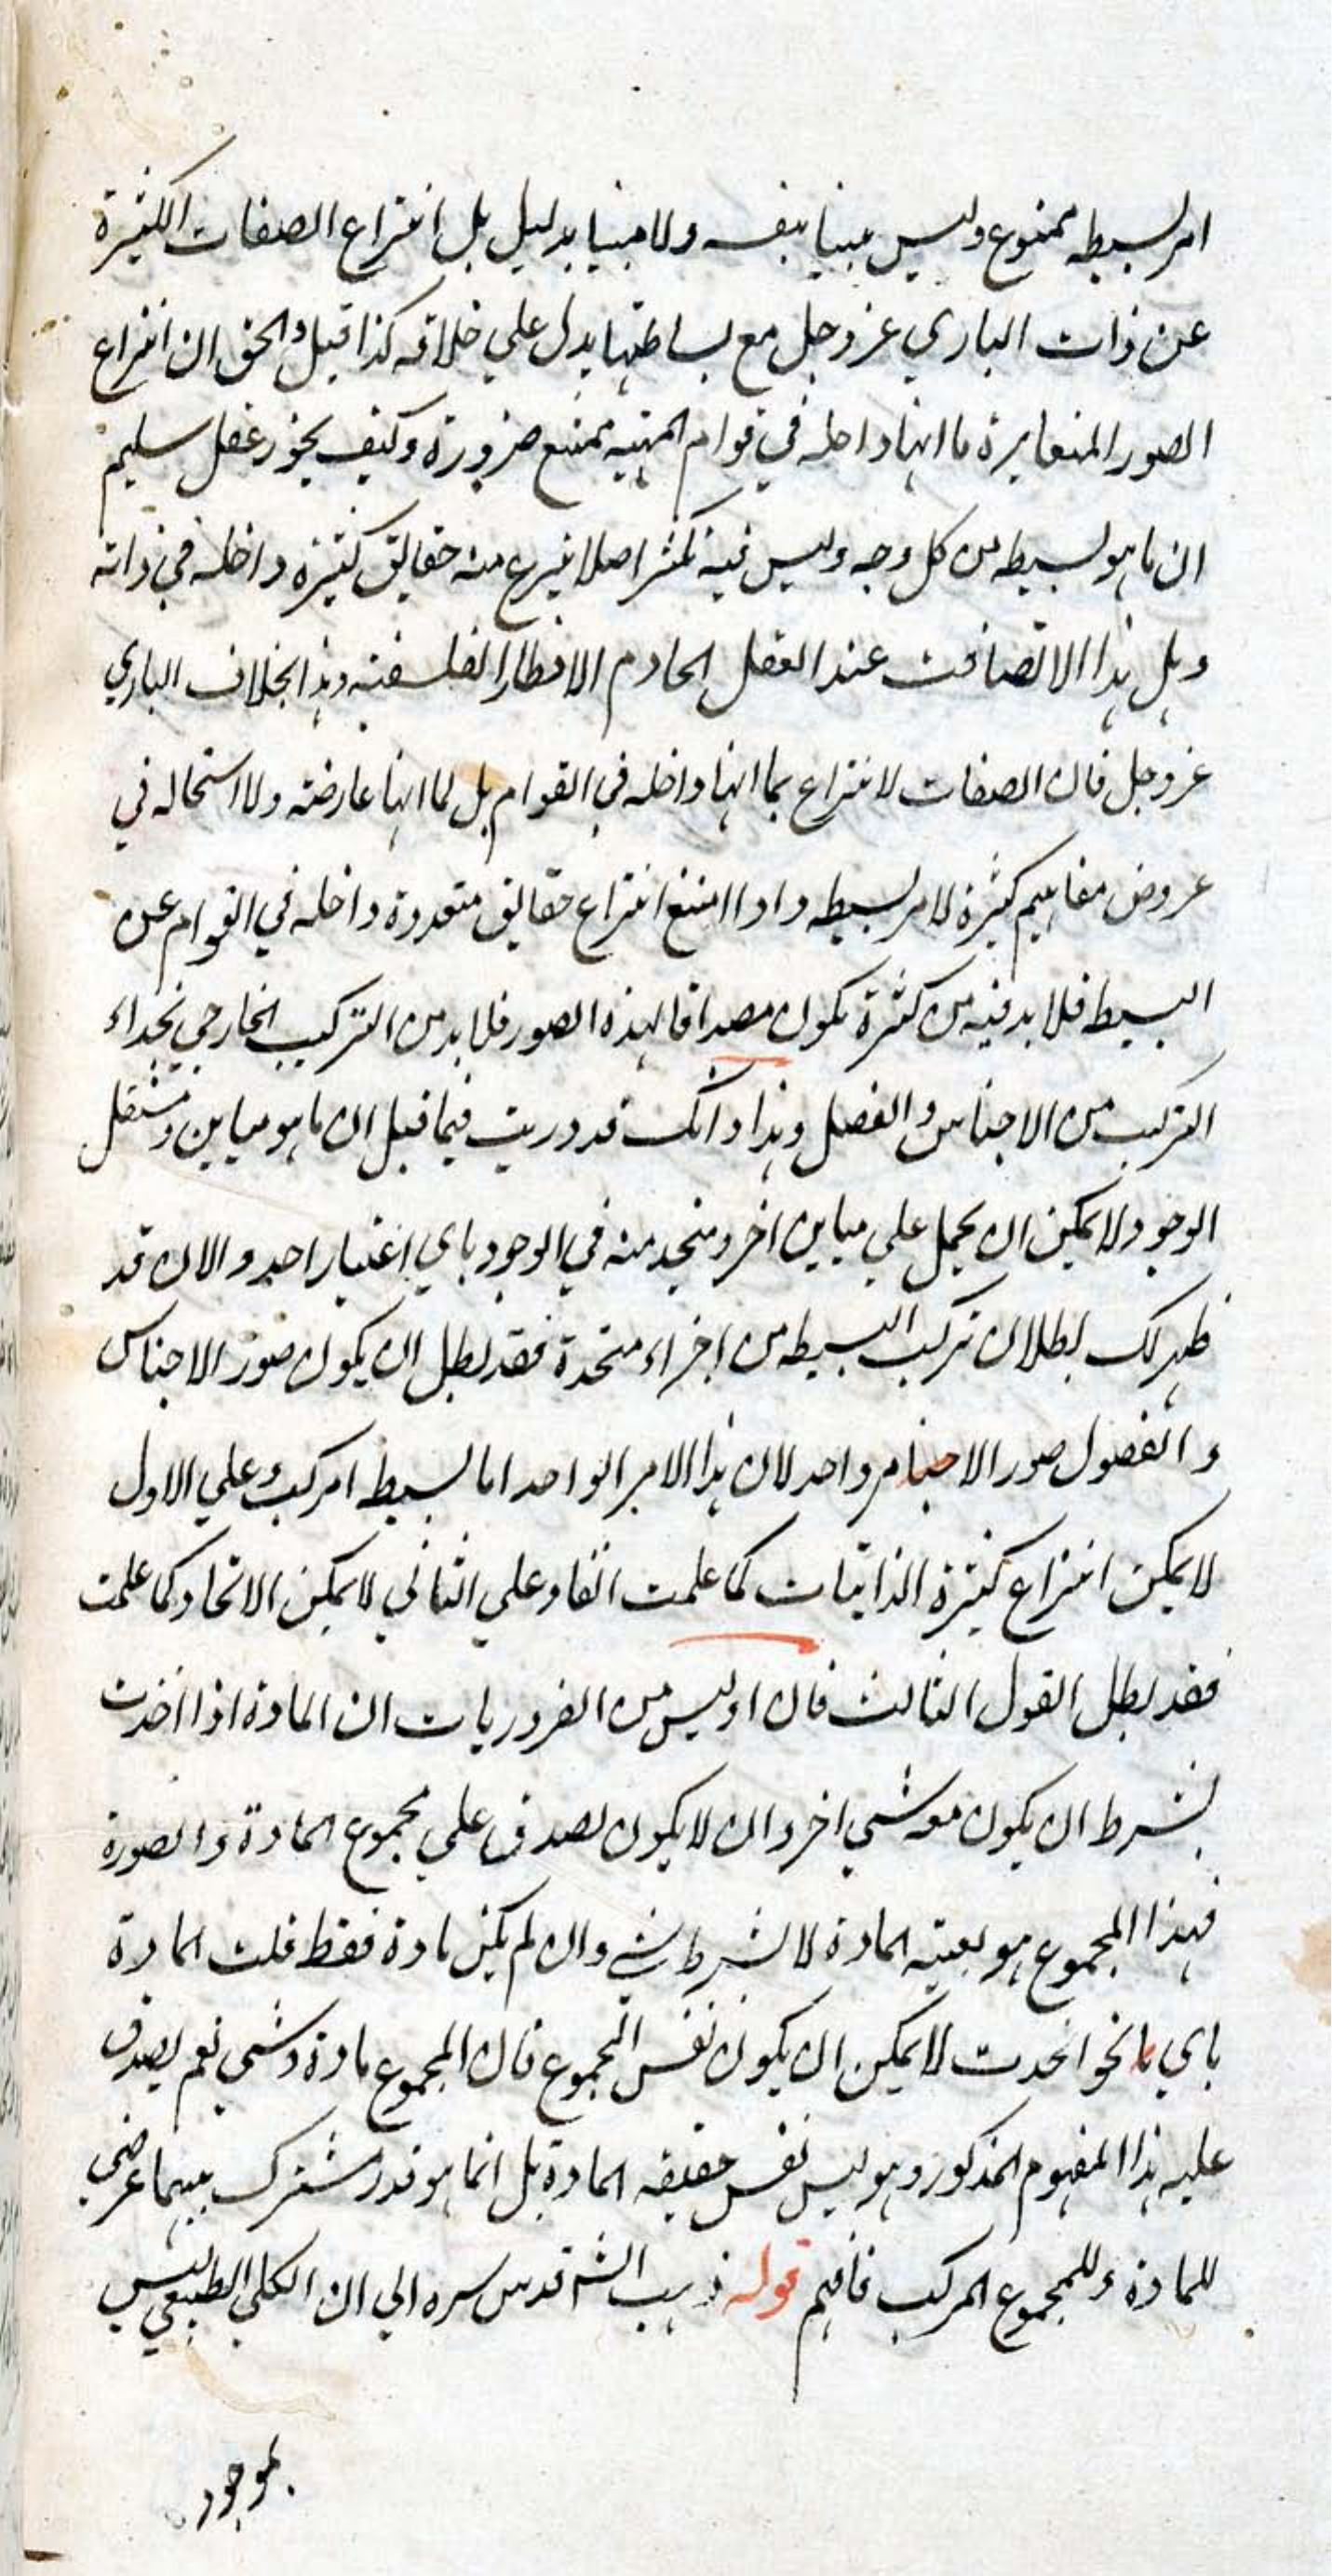 امر بسيط ممنوع وليس مبينا بنفسه ولا مبنيا بدليل بل انتزاع الصفات الكثيرة
عن ذات الباري عز وجل مع بساطتها يدل علي خلافه كذا قيل والحق ان انتزاع
الصور المتغايرة ما انها داخله في قوام المهيه ممتنع ضرورة وكيف يجوز عقل سليم
ان ما هو بسيط من كل وجه وليس فيه تكثر اصلا ينتزع منه حقايق كثيره داخله في ذاته
وهل هذا الا تهافت عند العقل الخادم الافطار الفلسفيه وهذا بخلاف الباري
عز وجل فان الصفات لا تنتزع بما انها داخله في القوام بل لما انها عارضه ولا استحاله في
عروض مفاهيم كثيرة لامر بسيط واذا امتنع انتزاع حقايق متعددة داخله في القوام عن
البسيط فلا بد فيه من كثرة تكون مصداقا لهذه الصور فلا بد من التركيب الخارجي بحذاء
التركيب من الاجناس والفصل وهذا وانك قد دريت فيما قبل ان ما هو مباين ومستقل
الوجود لا يمكن ان يحمل علي مباين اخر ومتحد منه في الوجود باي اعتبار اخد والان قد
ظهر لك بطلان تركب البسيط من اجزاء متحدة فقد بطل ان يكون صور الاجناس
والفصول صور الامر واحد لان هذا الامر الواحد اما بسيط او مركب وعلي الاول
لا يمكن انتزاع كثيرة الذاتيات كما علمت انفا وعلي الثاني لا يمكن الاتحاد كما علمت
فقد بطل القول الثالث فان اوليس من الضروريات ان المادة اذا اخذت
بشرط ان يكون معه شي اخر وان لا يكون يصدق علي مجموع المادة والصورة
فهذا المجموع هو بعينه المادة لا بشرط شي وان لم يكن مادة فقط قلت المادة
باي نحو اخدت لا يمكن ان يكون نفس المجموع فان المجموع مادة وشي نعم يصدق
عليه هذا المفهوم المذكور وهو ليس نفس حقيقه المادة بل انما هو قدر مشترك بينهما عرضي
للمادة وللمجموع المركب فافهم قوله ذهب الش قدس سره الي ان الكلي الطبيعي ليس
بموجود